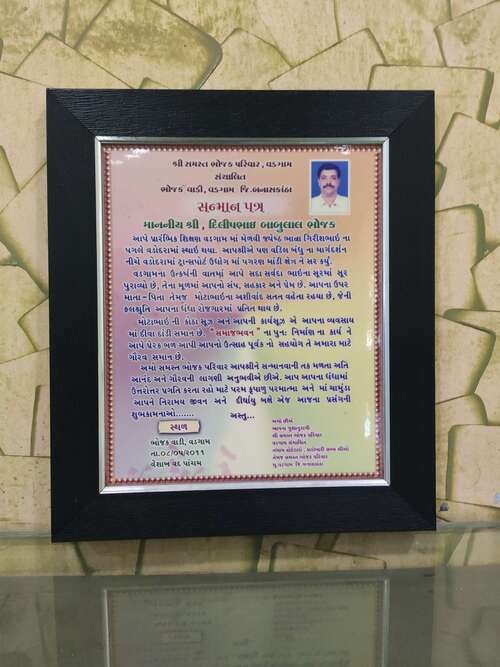 શ્રી સમસ્ત ભોજક પરિવાર , વડગામ
સંચાલિત
ભોજક વાડી, વડગામ જિ.બનાસકાંઠા
સન્માન પત્ર
માનનીય શ્રી , દિલીપભાઇ બાબુલાલ ભોજક
આપે પ્રારંભિક શિક્ષણ વડગામ માં મેળવી જ્યેષ્ઠ ભ્રાતા ગિરીશભાઇ ના
પગલે વડોદરામાં સ્થાઇ થયા. આપશ્રીએ પણ વડિલ બંધુ ના માર્ગદર્શન
નીચે વડોદરામાં ટ્રાન્સપોર્ટ ઉદ્યોગ માં પગરણ માંડી ક્ષેત્ર ને સર કર્યુ.
વડગામના ઉત્કર્ષની વાતમાં આપે સદા સર્વદા ભાઇના સૂરમાં સૂર
પુરાવ્યો છે, તેના મૂળમાં આપનો સંપ, સહકાર અને પ્રેમ છે. આપના ઉપર
માતા - પિતા તેમજ મોટાભાઇના આશીર્વાદ સતત વર્ષતા રહયા છે, જેની
ફલશ્રુતિ આપના ધંધા રોજગારમાં પ્રતિત થાય છે.
મોટાભાઇ ની કાંઠા સુઝ અને આપની કાર્યસુઝ એ આપના વ્યવસાય
માં દીવા દાંડી સમાન છે. "સમાજભવન" ના પુન: નિર્માણ ના કાર્ય ને
આપે પ્રેરક બળ આપી આપનો ઉત્સાહ પૂર્વક નો સહયોગ તે અમારા માટે
ગૌરવ સમાન છે.
અમો સમસ્ત ભોજક પરિવાર આપશ્રીને સન્માનવાની તક મળતા અતિ
આનંદ અને ગૌરવની લાગણી અનુભવીએ છીએ. આપ આપના ધંધામાં
ઉત્તરોત્તર પ્રગતિ કરતા રહો માટે પરમ કૃપાળુ પરમાત્મા અને માં ચામુંડા
આપને નિરામય જીવન અને દીર્ઘાયુ બક્ષે એજ આજના પ્રસંગની
શુભકામનાઓ....... અસ્તુ...
સ્થળ
ભોજક વાડી, વડગામ
તા.૦૮/૦૫/૨૦૧૧
વૈશાખ વદ પાંચમ
અમો છીએ
આપના શુભેચ્છકો
શ્રી સમસ્ત ભોજક પરિવાર
વડગામ સંચાલિત
તેમજ સમસ્ત ભોજક પરિવાર
મુ.વડગામ જિ.બનાસકાંઠા